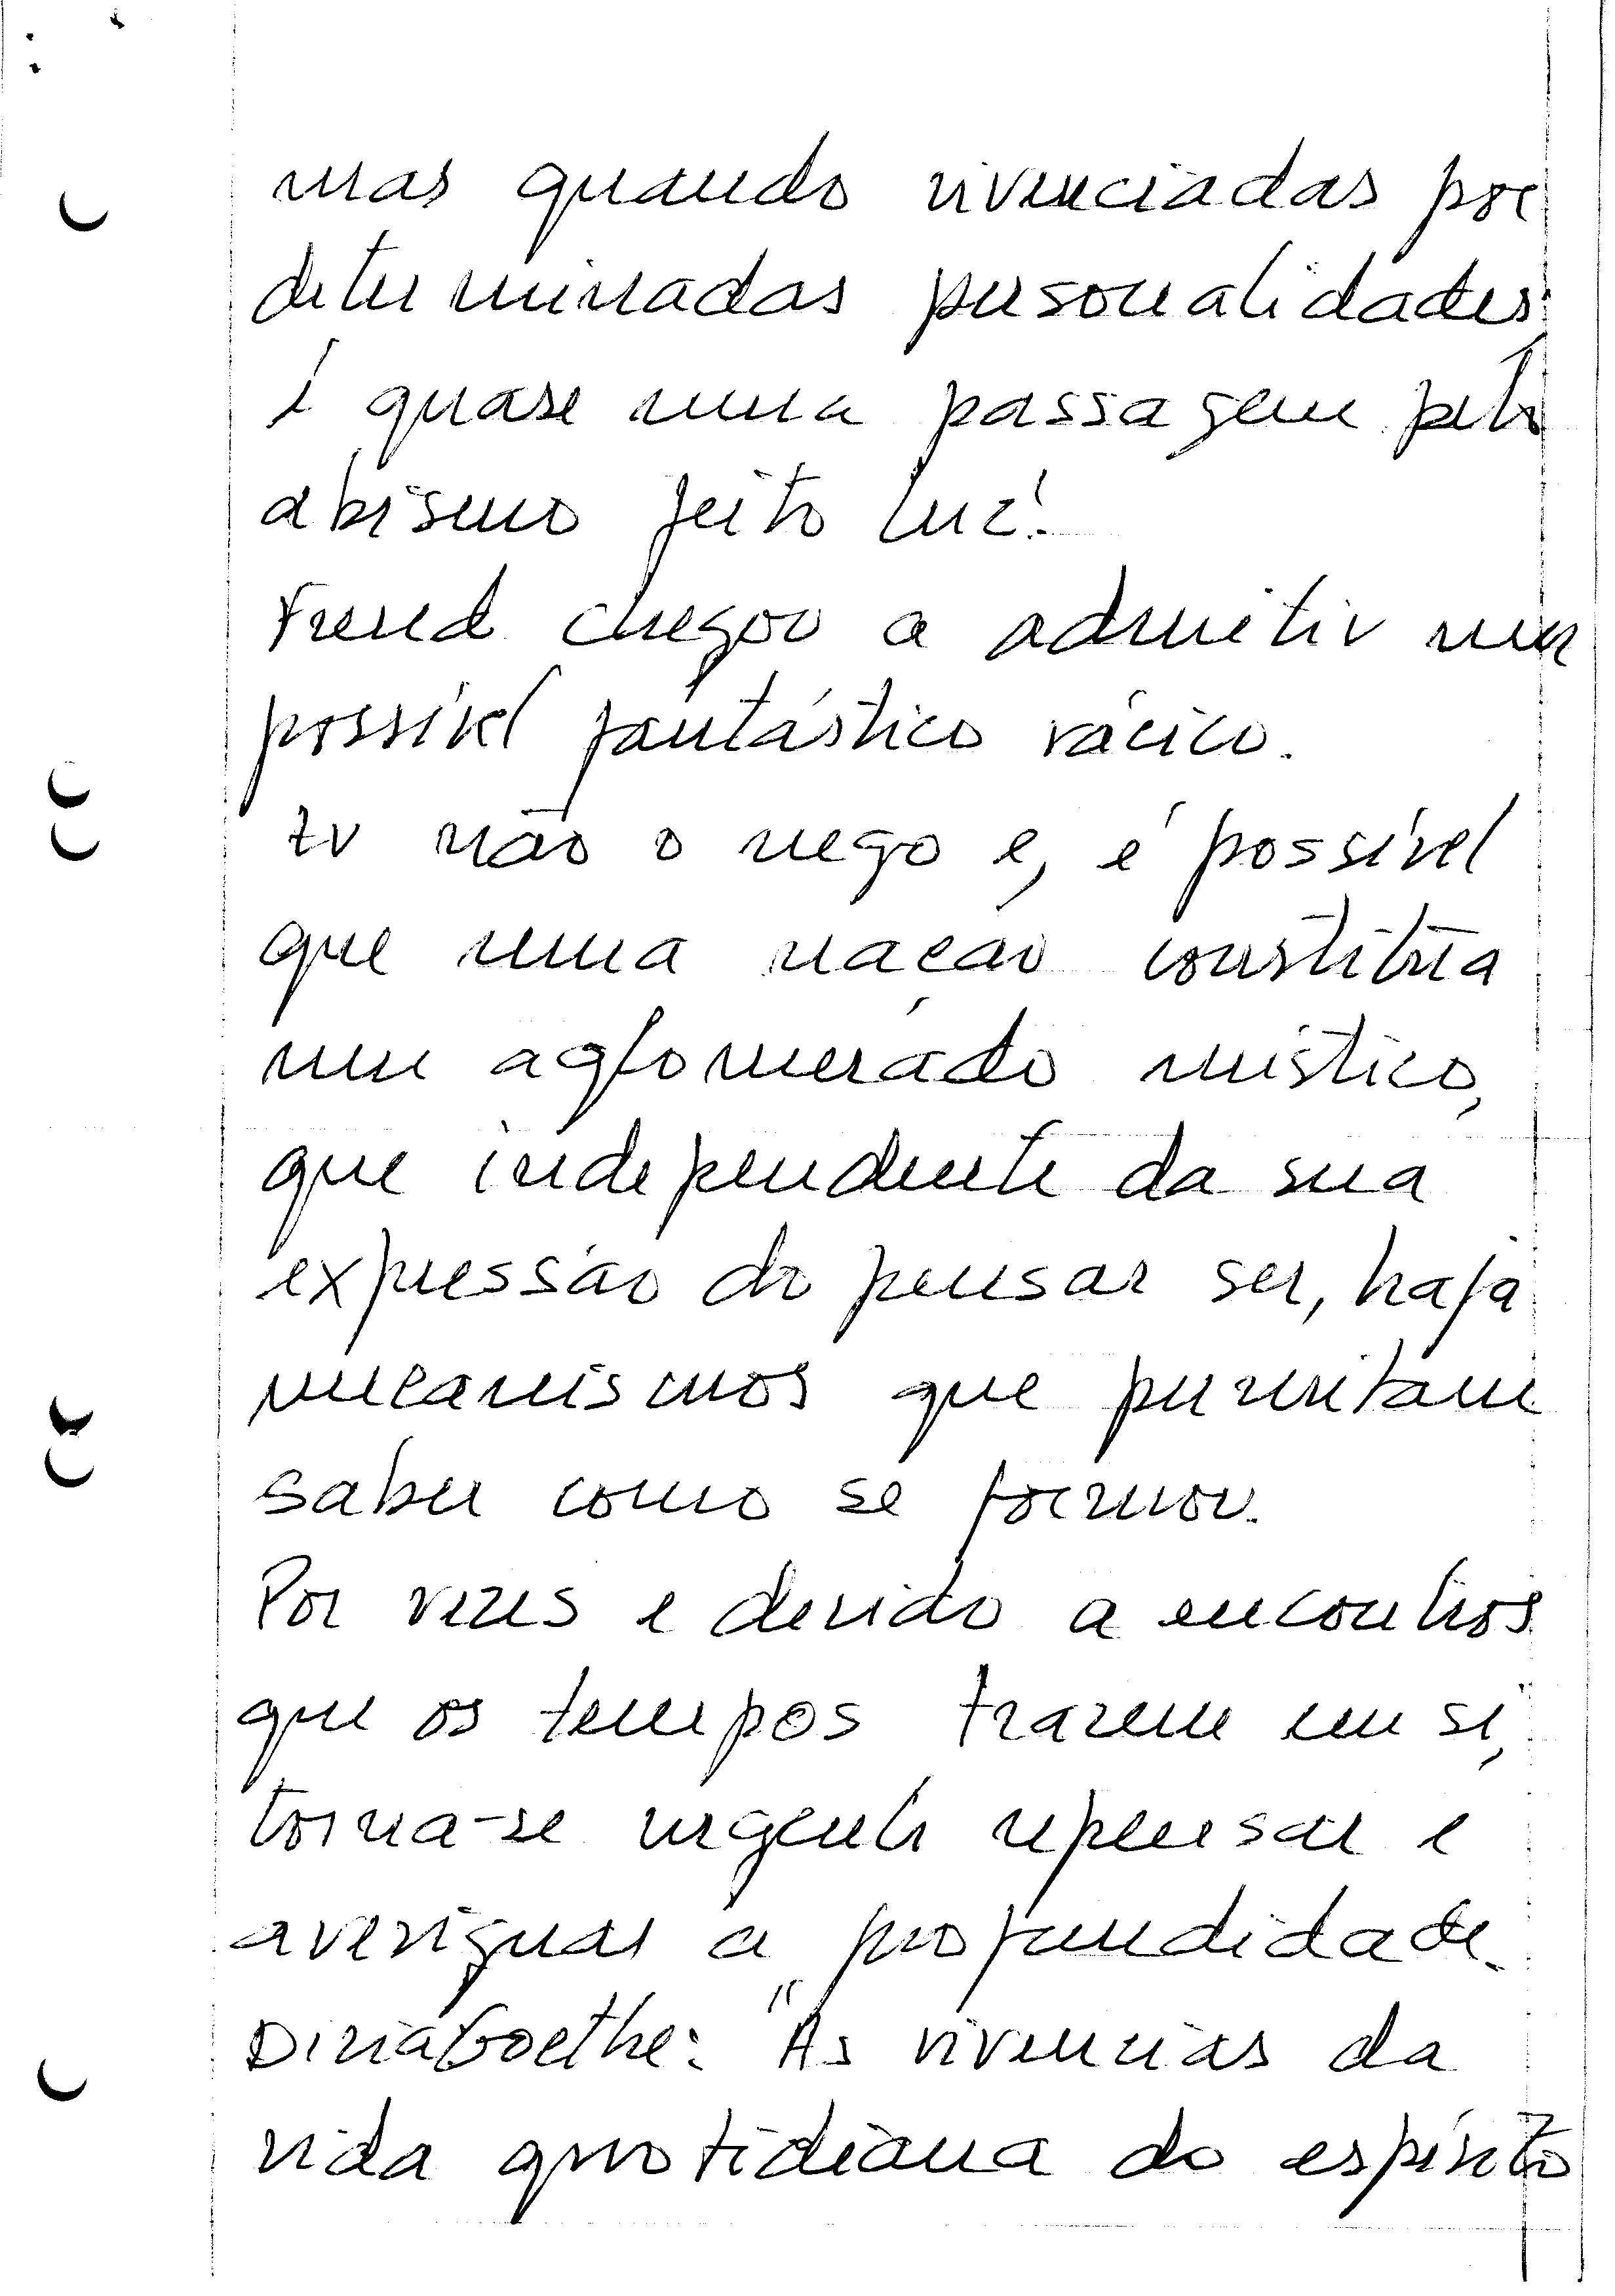 mas quando vivenciadas por
determinadas personalidades
é quase uma passagem pelo
abismo feito luz!
Freud chegou a admitir um
possível fantástico rácico.
Eu não o nego e, é possível
que uma nação constitua
um aglomerado místico,
que independente da sua
expressão do pensar ser, haja
mecanismos que permitam
saber como se formou.
Por vezes e devido a encontros
que os tempos trazem em si,
torna-se urgente repensar e
averiguar a profundidade.
Diria Goethe: "As vivencias da
vida quotidiana do espírito